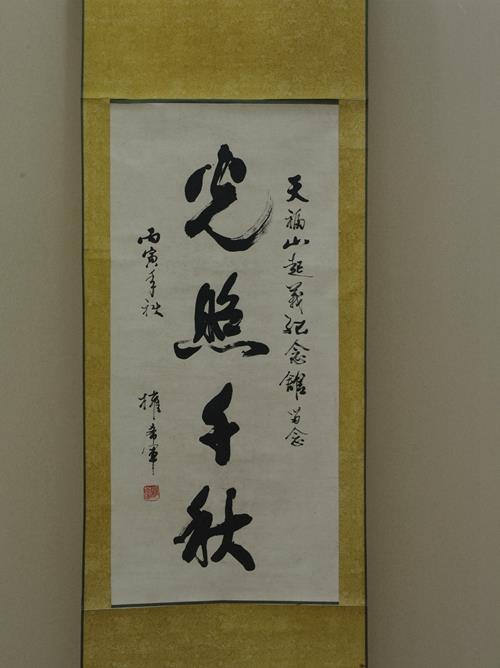 天福山起義紀念館留念
光照千秋
丙寅年秋
權希軍